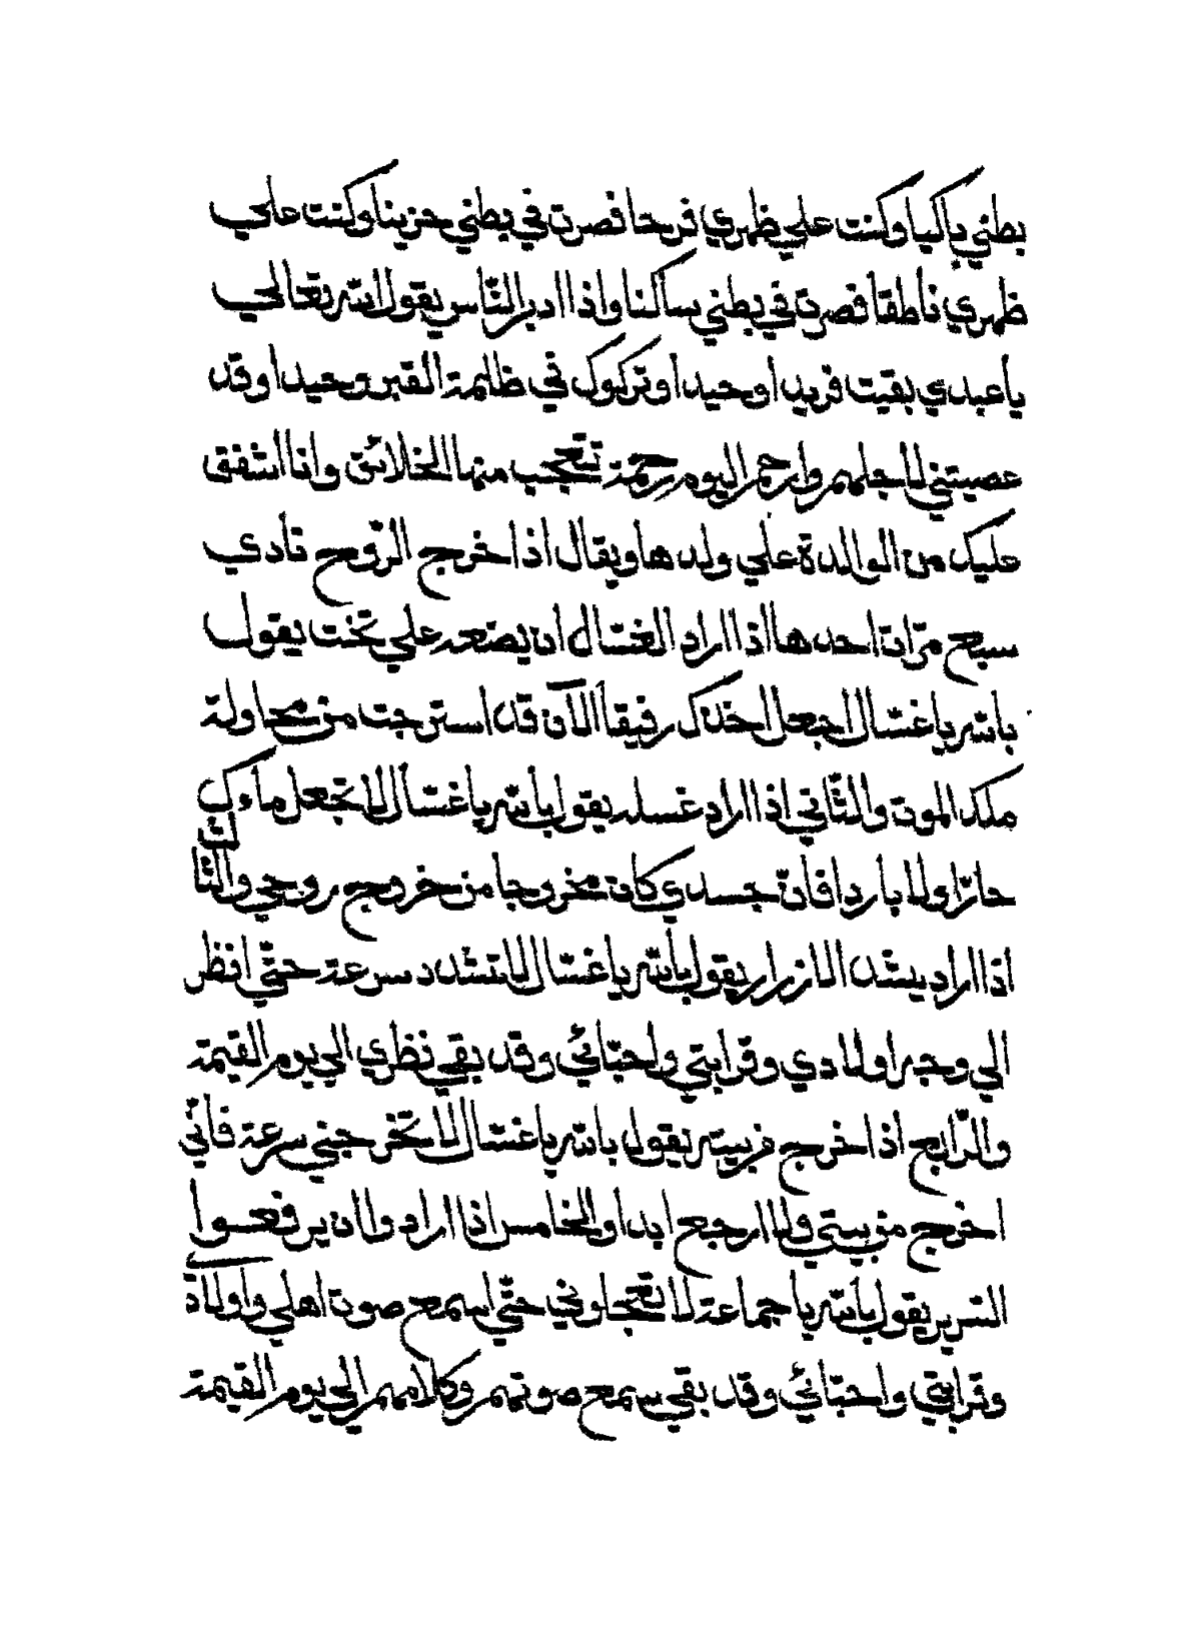 بطني باكيا وكنت علي ظهري فرحا فصرت في بطني حزينا وكنت علي
ظهري ناطقا فصرت في بطني ساكنا واذا ادبر النّاس يقول الله تعالي
يا عبدي بقيت فريدا وحيدا وتركوك في ظلمة القبر وحيدا وقد
عصيتني لاجلهم وارحم اليوم رحمة تتعجب منها الخلائق وانا اشفق
عليك من الوالدة علي ولدها ويقال اذا خرج الرّوح نادي
سبع مرّات احدها اذا اراد الغسّال ان يضعه علي تخت يقول
بالله يا غسّال اجعل اخذك رفيقا الآن قد استرجت من محاولة
ملك الموت والثّاني اذا اراد غسله يقول بالله يا غسّال لا تجعل ماءك
حارّا ولا باردا فانّ جسدي كان مخروجا من خروج روحي والثّالث
اذا اراد يشد الازرار يقول بالله يا غسّال لا تشدد سرعة حتّي انظر
الي وجه اولادي وقرابتي واحبّائي وقد بقي نظري الي يوم القيمة
والرّابع اذا خرج من بيته يقول بالله يا غسّال لا تخرجني سرعة فانّي
اخرج من بيتي ولا ارجع ابدا والخامس اذا ارادوا ان يرفعوا
السّرير يقول بالله يا جماعة لا تعجلوني حتّي اسمع صوت اهلي واولاد
وقرابتي واحبّائي وقد بقي سمع صوتهم وكلامهم الي يوم القيمة